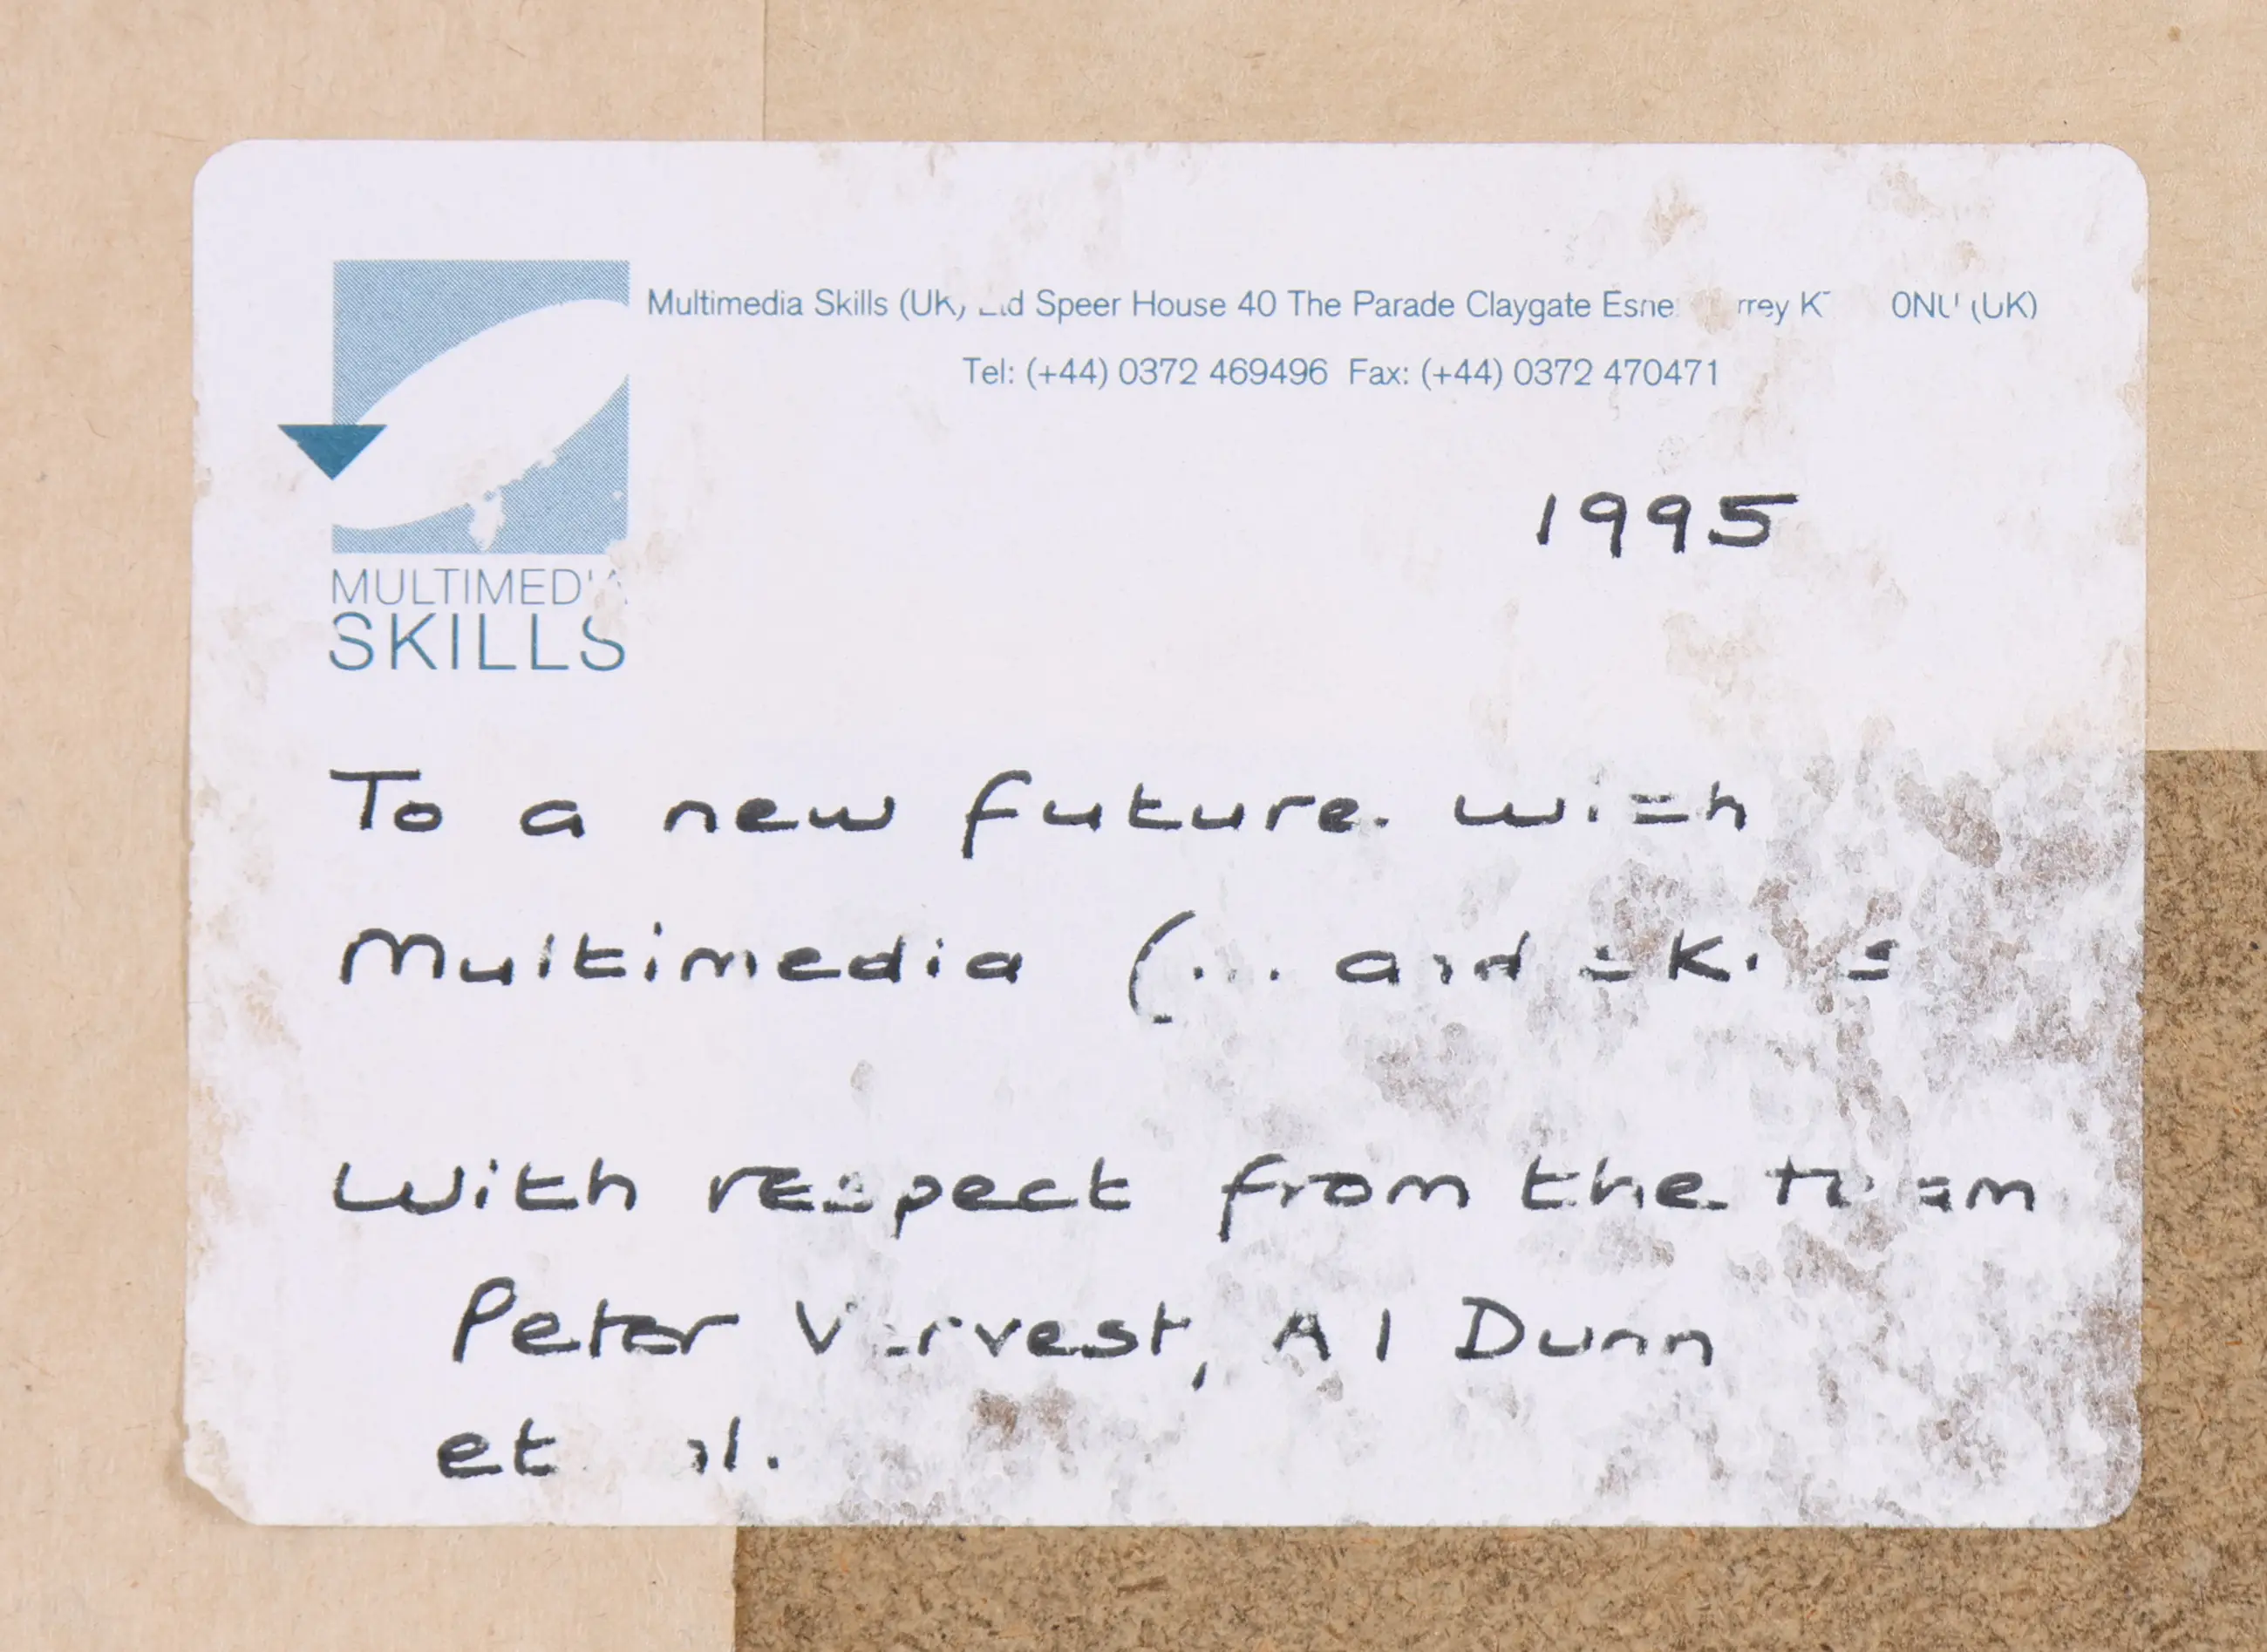 Multimedia Skills (UK) Ltd Speer House 40 The Parade Claygate Esher Surrey 0NU (UK)
Tel: (+44) 0372 469496 Fax: (+44) 0372 470471
MULTIMEDIA
SKILLS
1995
To a new future with
Multimedia (... and skills
With respect from the team
Peter Vervest, Al Dunn
et al.